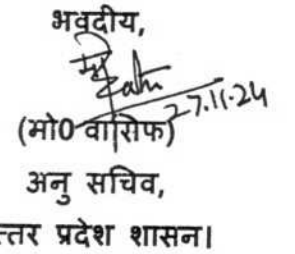 भवदीय,
27.11.24
(मो0 वासिफ)
अनु सचिव,
त्तर प्रदेश शासन।